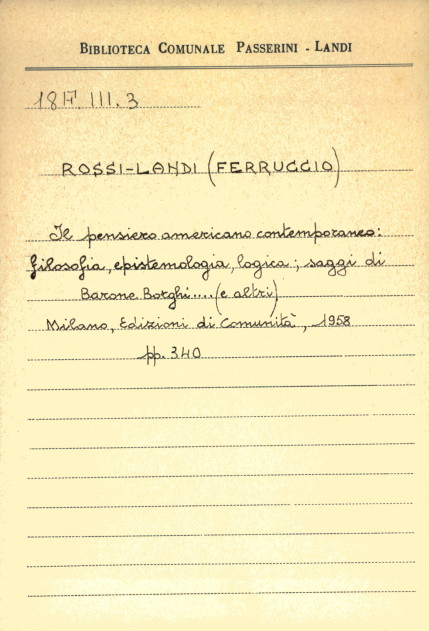 BIBLIOTECA COMUNALE PASSERINI - LANDI
18F. III. 3
ROSSI-LANDI (FERRUCCIO)
Il pensiero americano contemporaneo:
filosofia, epistemologia, logica; saggi di
Barone. Borghi.... (e altri)
Milano, Edizioni di Comunità, 1958
pp. 340